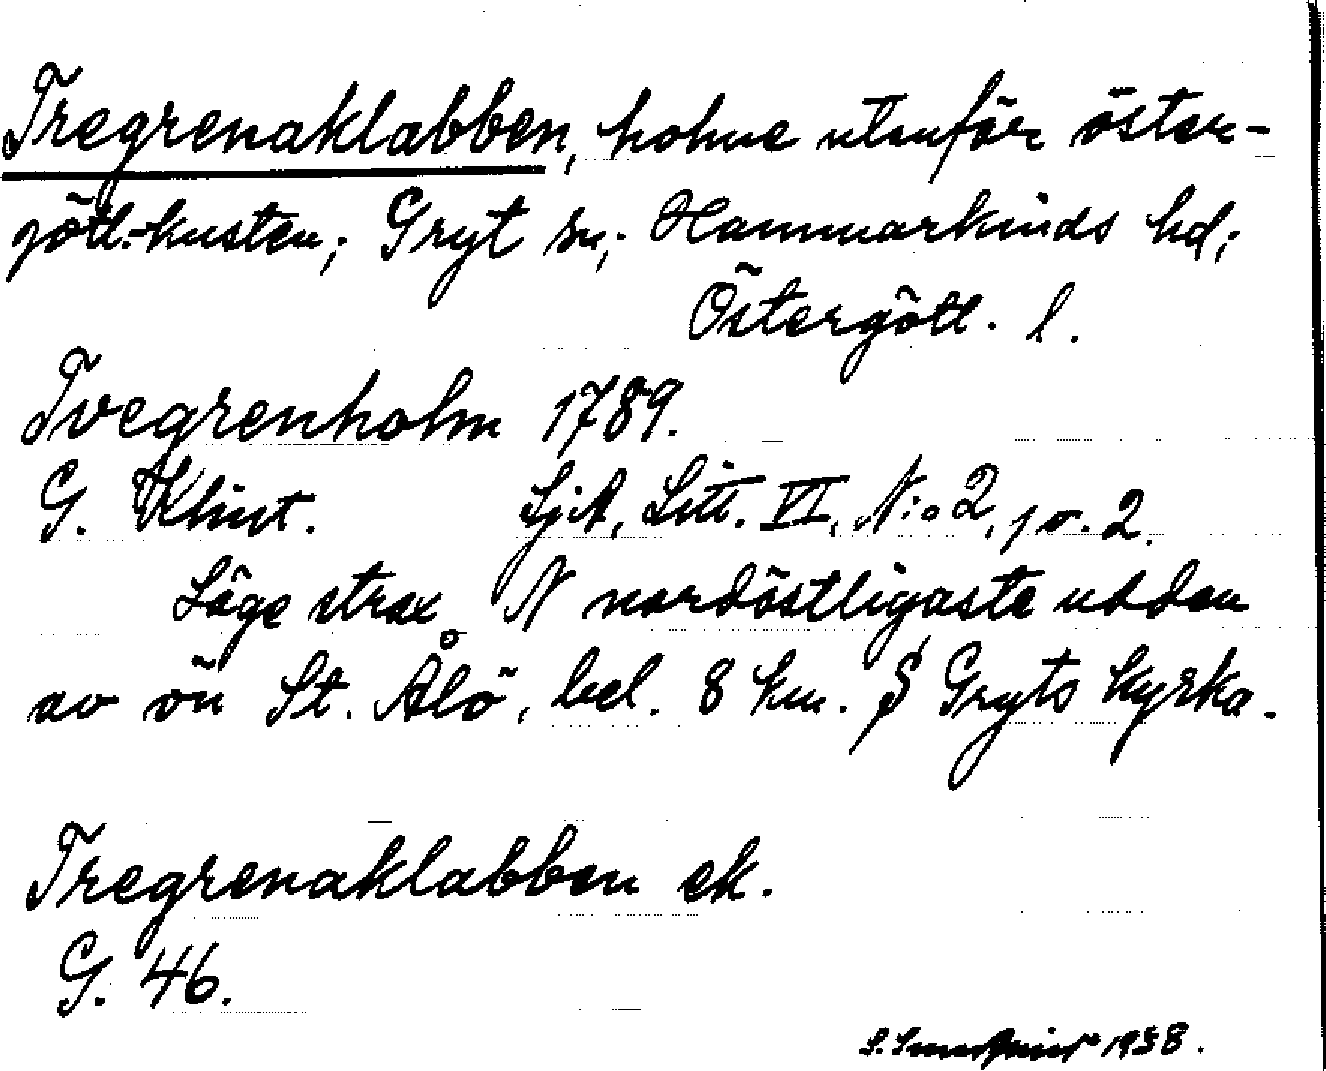 Tregrenaklabben, holme utanför öster-
götl.-kusten; Gryt sn; Hammarkinds hd;
Östergötl. l.
Tvegrenholm 1789.
G. Klint. SjA, Litt. VI, N:o 2, sr. 2.
Läge strax N nordöstligaste udden
av ön St. Ålö, bel. 8 km. S Gryts kyrka.
Tregrenaklabben ek.
G. 46.
S. 1938.